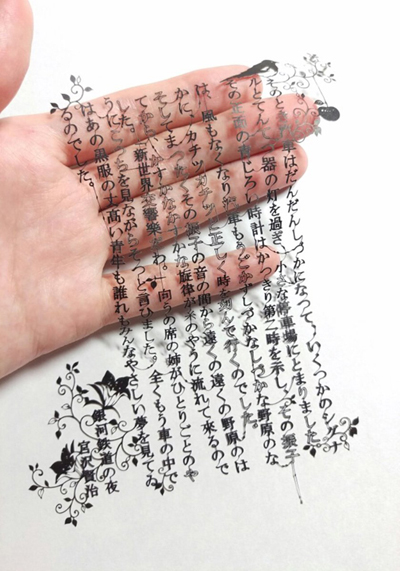 そのとき汽車はだんだんしづかになつて、いくつかのシグナ
ルとてんてつ器の灯を過ぎ、小さな停車場にとまりました。
その正面の青じろい時計はかつきり第二時を示し、その振子
は、風もなくなり汽車もうごかずしづかなしづかな野原のな
かに、カチッカチッと正しく時を刻んで行くのでした。
そしてまつたくその振子の音の間から遠くの遠くの野原のは
てから、かすかなかすかな旋律が糸のやうに流れて来るので
した。「新世界交響楽だわ。」向うの席の姉がひとりごとのや
うにこつちを見ながらそつと言ひました。全くもう車の中で
はあの黒服の丈高い青年も誰れもみんなやさしい夢を見てゐ
るのでした。
銀河鉄道の夜
宮沢賢治